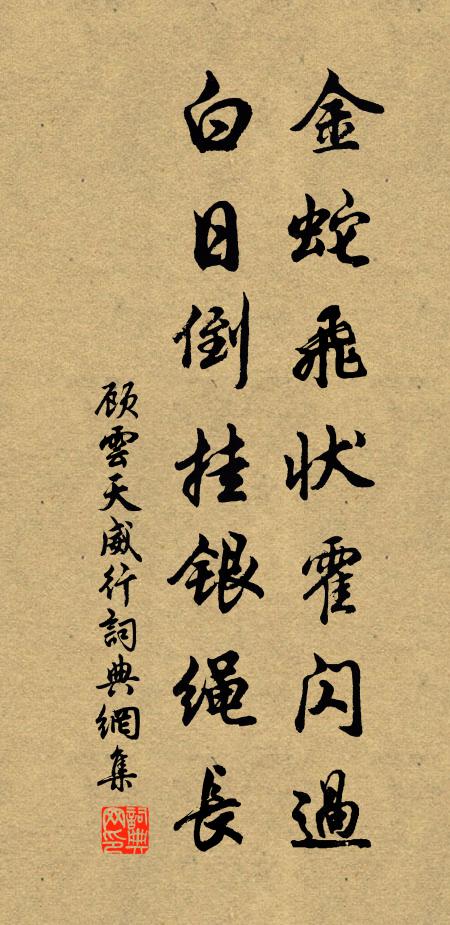 金蛇飛状霍闪過
白日倒挂银绳長
顾雲天威行詞典網集
詞典网印